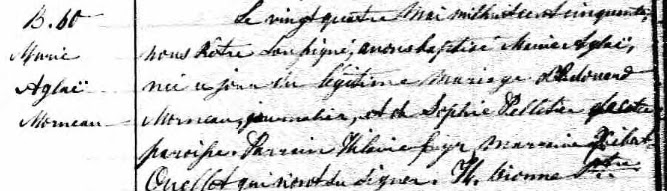 B. 60
Marie
Aglaë
Morneau
Le vingt quatre Mai mil huit cent cinquante,
nous Prêtre soussigné, avons baptisé Marie Aglaë,
née ce jour du légitime mariage d'Edouard
Morneau, journalier, et de Sophie Pelletier de cette
paroisse. Parrain Hilaire marraine
Ouellet qui n'ont su signer. Th. Dionne Ptre